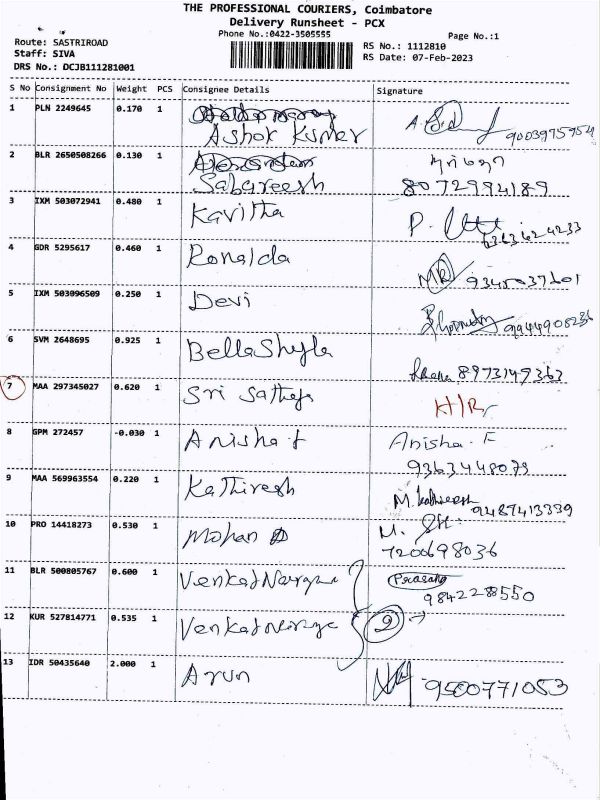 THE PROFESSIONAL COURIERS, Coimbatore
Delivery Runsheet - PCX
Phone No.:0422-3505555
Page No.:1
Route: SASTRIROAD
Staff: SIVA
DRS No.: DCJB111281001
RS No.: 1112810
RS Date: 07-Feb-2023
S No Consignment No Weight PCS Consignee Details Signature
1 PLN 2249645 0.170 1 Ashok Kumar A.
2 BLR 2650508266 0.130 1 Sabareesh
8072994189
3 IXM 503072941 0.480 1 Kavitha P.
6363624233
4 GDR 5295617 0.460 1 Ronalda 9345037601
5 IXM 503096509 0.250 1 Devi 9944908236
6 SVM 2648695 0.925 1 BellaSheyla 8973149363
7 MAA 297345027 0.620 1 Sri
8 GPM 272457 -0.030 1 Anisha f Anisha. F
9363448079
9 MAA 569963554 0.220 1 Kathiresh M. Kathiresh
9487413339
10 PRO 14418273 0.530 1 Mohan M.
7200698036
11 BLR 500805767 0.600 1 Prasang
984228550
12 KUR 527814771 0.535 1 2
13 IDR 50435640 2.000 1 Arun 9500771053